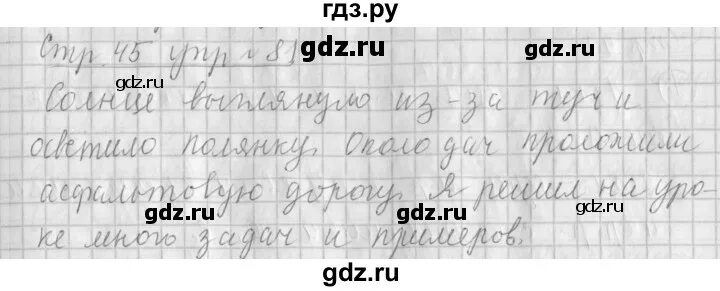 гдз.ру
Стр. 45 упр. 8
gdz.ru gdz.ru
Солнце выглянуло из-за туч и
осветило полянку. Около дач проложили
асфальтовую дорогу. Я решил на уро-
gdz.ru gdz.ru gdz.ru
ке много задач и примеров.
gdz.ru